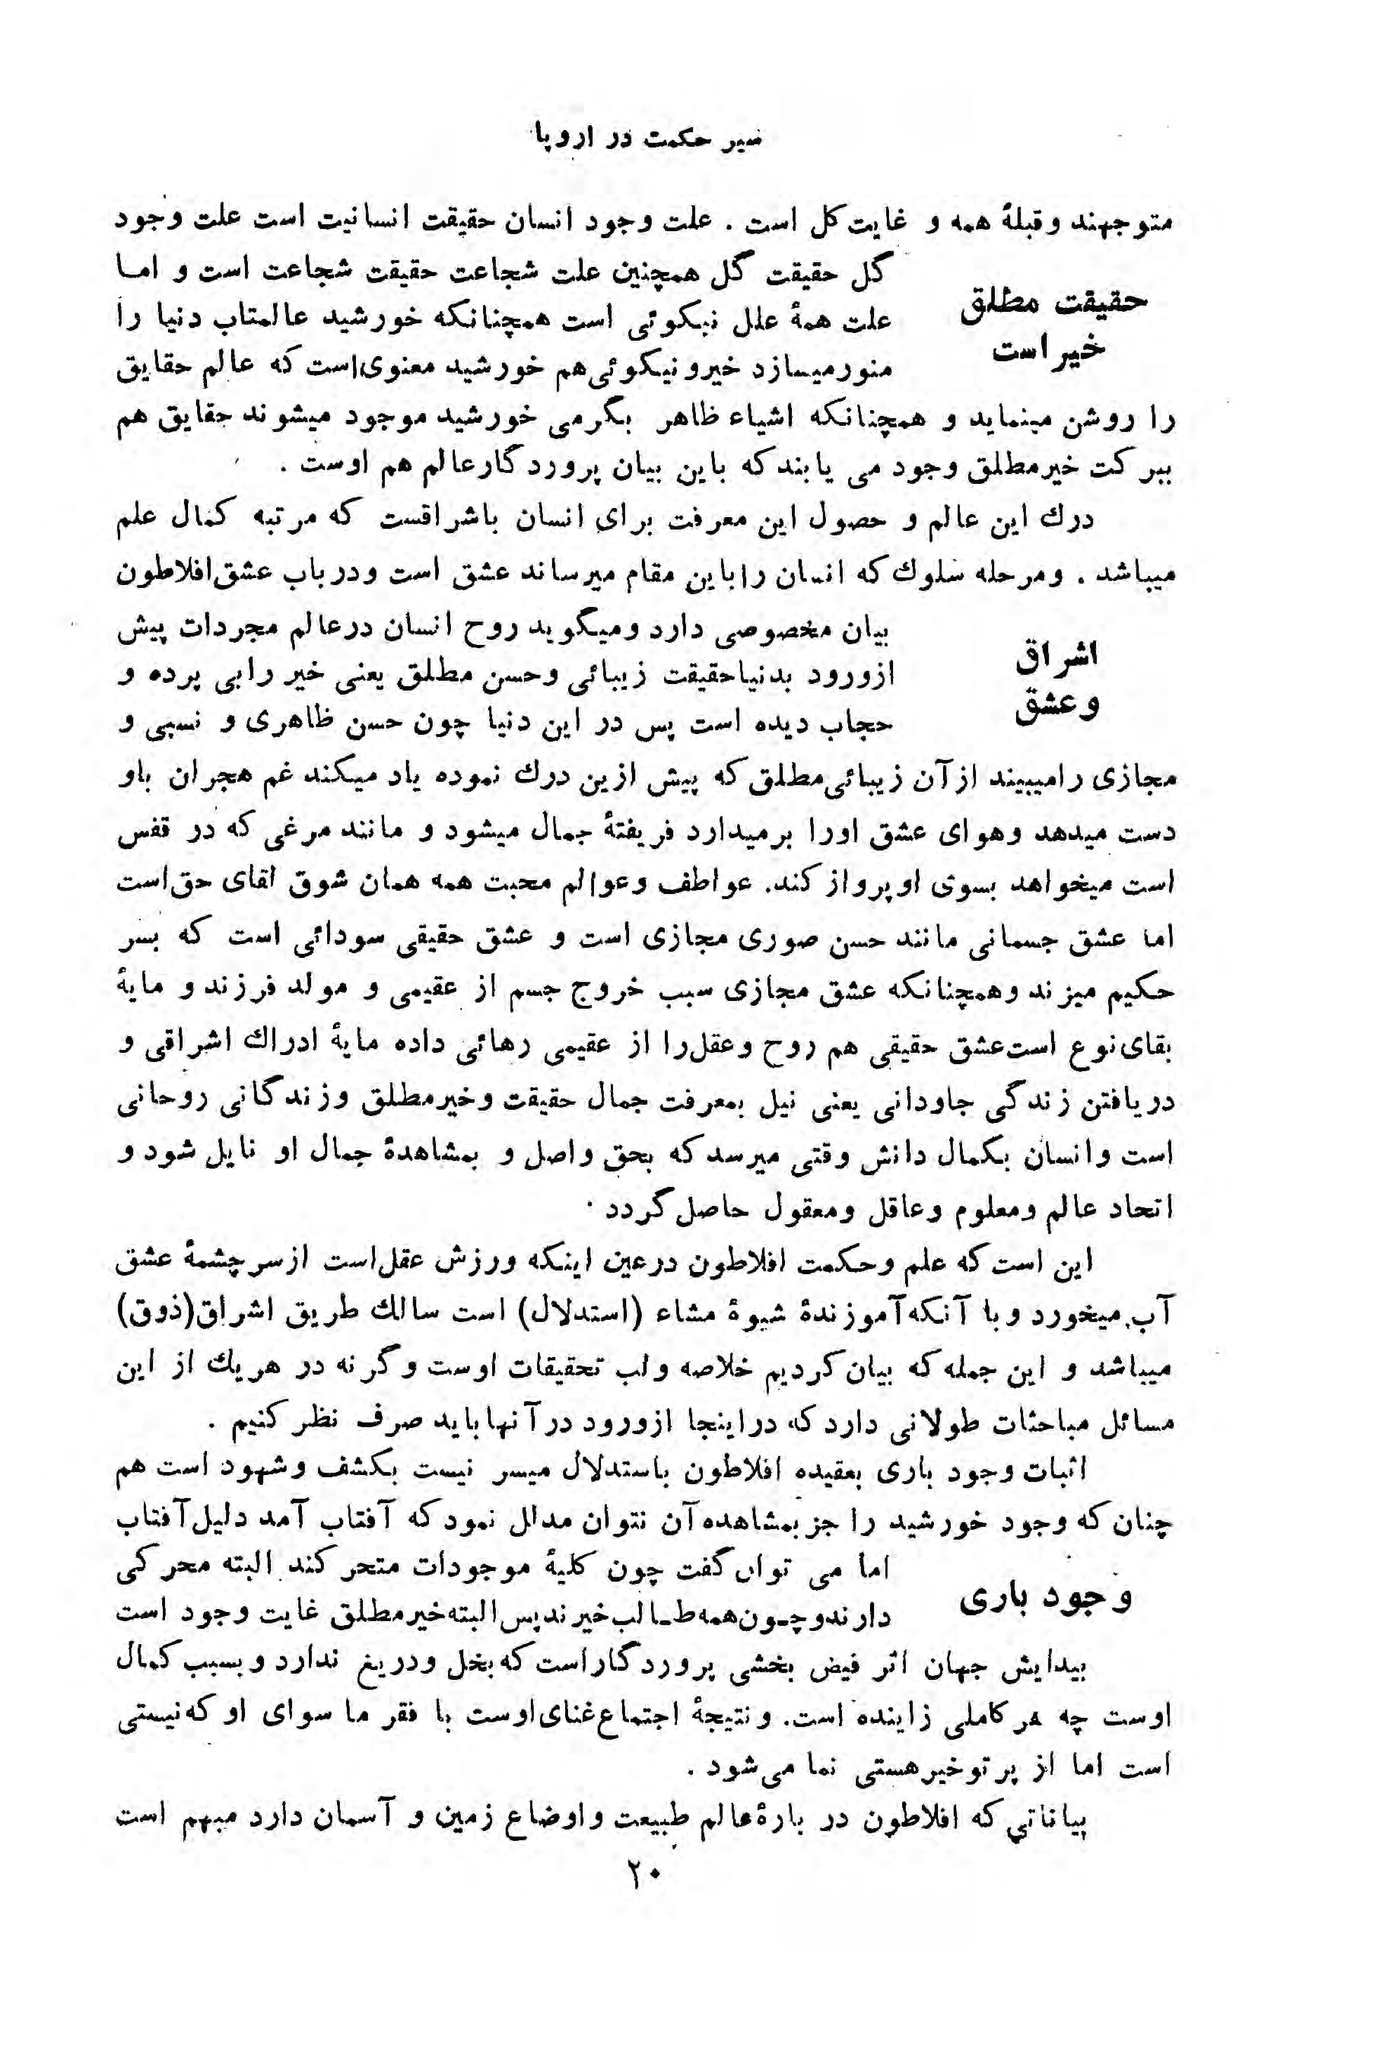 سیر حکمت در اروپا
متوجهند وقبلهٔ همه و غایت‌کل است . علت وجود انسان حقیقت انسانیت است علت وجود
گل حقیقت گل همچنین علت شجاعت حقیقت شجاعت است و اما
حقیقت مطلق
خیر است
علت همهٔ علل نیکوئی است همچنانکه خورشید عالمتاب دنیا را
منورمیسازد خیرونیکوئی‌هم خورشید معنوی‌است که عالم حقایق
را روشن مینماید و همچنانکه اشیاء ظاهر بگرمی خورشید موجود میشوند حقایق هم
ببرکت خیرمطلق وجود می یابندکه باین بیان پروردگارعالم هم اوست .
درك این عالم و حصول این معرفت برای انسان باشراقست که مرتبه کمال علم
میباشد . ومرحله سلوك که انسان راباین مقام میرساند عشق است ودرباب عشق‌افلاطون
بیان مخصوصی دارد ومیگوید روح انسان درعالم مجردات پیش
اشراق
وعشق
ازورود بدنیاحقیقت زیبائی وحسن مطلق یعنی خیر رابی پرده و
حجاب دیده است پس در این دنیا چون حسن ظاهری و نسبی و
مجازی رامیبیند ازآن زیبائی‌مطلق‌که پیش ازین درك نموده یاد میکند غم هجران باو
دست میدهد وهوای عشق اورا برمیدارد فریفتهٔ جمال میشود و مانند مرغی که در قفس
است میخواهد بسوی اوپرواز کند. عواطف وعوالم محبت همه همان شوق لقای حق‌است
اما عشق جسمانی مانند حسن صوری مجازی است و عشق حقیقی سودائی است که بسر
حکیم میزند وهمچنانکه عشق مجازی سبب خروج جسم از عقیمی و مولد فرزند و مایهٔ
بقای‌نوع است‌عشق حقیقی هم روح وعقل‌را از عقیمی رهائی داده مایهٔ ادراك اشراقی و
دریافتن زندگی جاودانی یعنی نیل بمعرفت جمال حقیقت وخیرمطلق وزندگانی روحانی
است وانسان بکمال دانش وقتی میرسدکه بحق واصل و بمشاهدهٔ جمال او نایل شود و
اتحاد عالم ومعلوم وعاقل ومعقول حاصل‌گردد .
این است‌که علم وحکمت افلاطون درعین اینکه ورزش عقل‌است ازسرچشمهٔ عشق
آب میخورد وبا آنکه‌آموزندهٔ شیوهٔ مشاء (استدلال) است سالك طریق اشراق(ذوق)
میباشد و این جمله که بیان‌کردیم خلاصه ولب تحقیقات اوست وگرنه در هریك از این
مسائل مباحثات طولانی دارد که دراینجا ازورود درآنهاباید صرف نظرکنیم .
اثبات وجود باری بعقیده افلاطون باستدلال میسر نیست بکشف وشهود است هم
چنان‌که وجود خورشید را جزبمشاهده‌آن نتوان مدلل نمودکه آفتاب آمد دلیل‌آفتاب
اما می توان‌گفت چون کلیهٔ موجودات متحرکند البته محرکی
وجود باری
دارندوچـون‌همه‌طـالب‌خیرندپس‌البته‌خیرمطلق غایت وجود است
پیدایش جهان اثر فیض بخشی پروردگاراست‌که‌بخل ودریغ ندارد وبسبب‌کمال
اوست چه هرکاملی زاینده است. ونتیجهٔ اجتماع‌غنای‌اوست با فقر ما سوای اوکه‌نیستی
است اما از پرتوخیرهستی نما می‌شود .
بیاناتی‌که افلاطون در بارهٔ‌عالم طبیعت واوضاع زمین و آسمان دارد مبهم است
۲۰